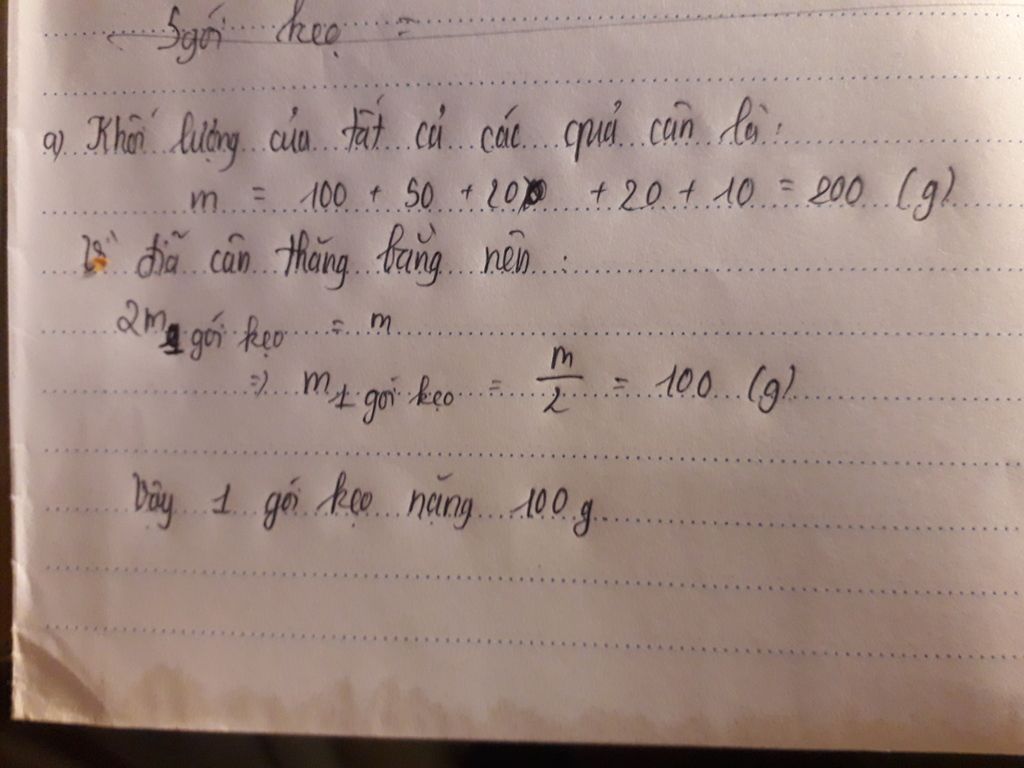 5 gói kẹo =
a) Khối lượng của tất cả các quả cân là:
m = 100 + 50 + 20 + 20 + 10 = 200 (g)
Vì đĩa cân thăng bằng nên:
2m1 gói kẹo = m
=> m1 gói kẹo = m/2 = 100 (g)
Vậy 1 gói kẹo nặng 100 g